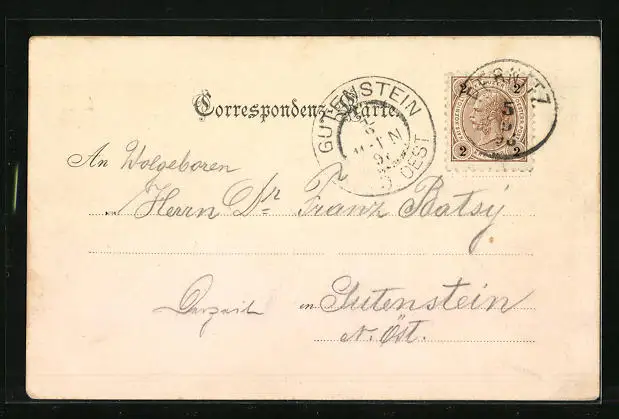 Correspondenz-Karte
GUTENSTEIN
N. OEST
PERNITZ
5
2 2
2 2
An Wolgeboren
Herrn Dr Franz Batsy
in Gutenstein
N. Öst.